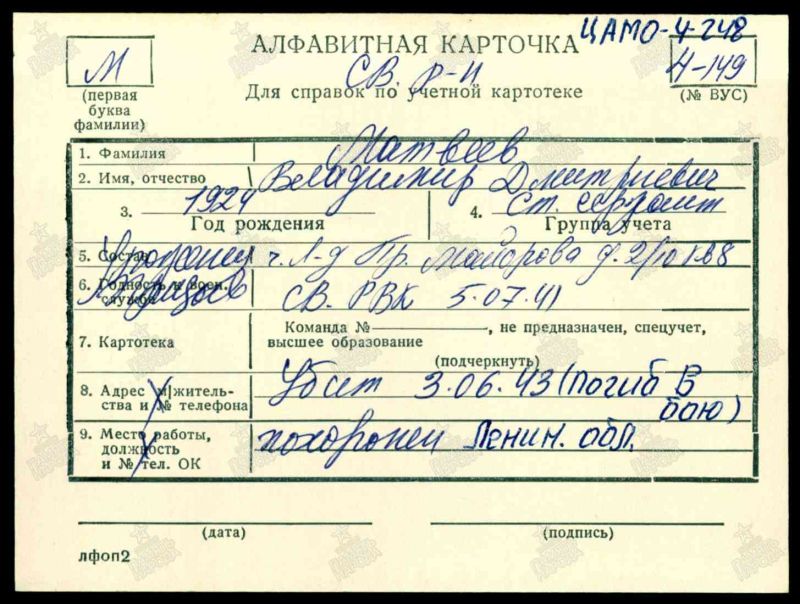 ЦАМО-4-248
АЛФАВИТНАЯ КАРТОЧКА
М
СВ. Р-Н
4-149
(первая
буква
фамилии)
Для справок по учетной картотеке
(№ ВУС)
1. Фамилия Матвеев
2. Имя, отчество Владимир Дмитриевич
3. 1924
Год рождения
4. Ст. сержант
Группа учета
5. Состав Уроженец г. Л-д Пр. Майорова д. 2/10 кв 8
6. Годность к воен.
службе Призван СВ. РВК 5.07.41
7. Картотека
Команда № , не предназначен, спецучет,
высшее образование
(подчеркнуть)
8. Адрес м/житель-
ства и № телефона
Убит 3.06.43 (погиб в
бою)
9. Место работы,
должность
и № тел. ОК
похоронен Ленин. обл.
(дата)
(подпись)
лфоп2